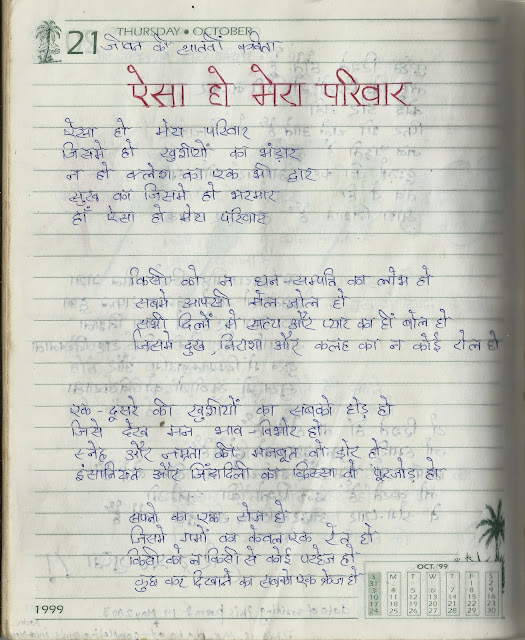 THURSDAY • OCTOBER
21 जीवन की सातवीं कविता
ऐसा हो मेरा परिवार
ऐसा हो मेरा परिवार
जिसमे हो खुशीयों का भंडार
न हो क्लेश का एक भी द्वार
सुख का जिसमे हो भरमार
हाँ ऐसा हो मेरा परिवार
किसी को न धन-सम्पति का लोभ हो
सबमे आपसी मेल-जोल हो
सभी दिलों मे सत्य और प्यार का हीं बोल हो
जिसमे दुख, निराशा और कलह का न कोई रोल हो
एक-दूसरे की खुशीयों का सबको होड़ हो
जिसे देख मन भाव-विभोर हो
स्नेह और नम्रता की मजबूत वो डोर हो
इंसानियत और जिंदादिली का किस्सा वो पूरजोड़ हो
सपनो का एक सेज हो
जिसमे गमों का केवल एक रेत हो
किसी को न किसी से कोई परहेज हो
कुछ कर दिखाने का सबको एक क्रेज हो
OCT '99
S M T W T F S
31 1 2
3 4 5 6 7 8 9
10 11 12 13 14 15 16
17 18 19 20 21 22 23
24 25 26 27 28 29 30
1999